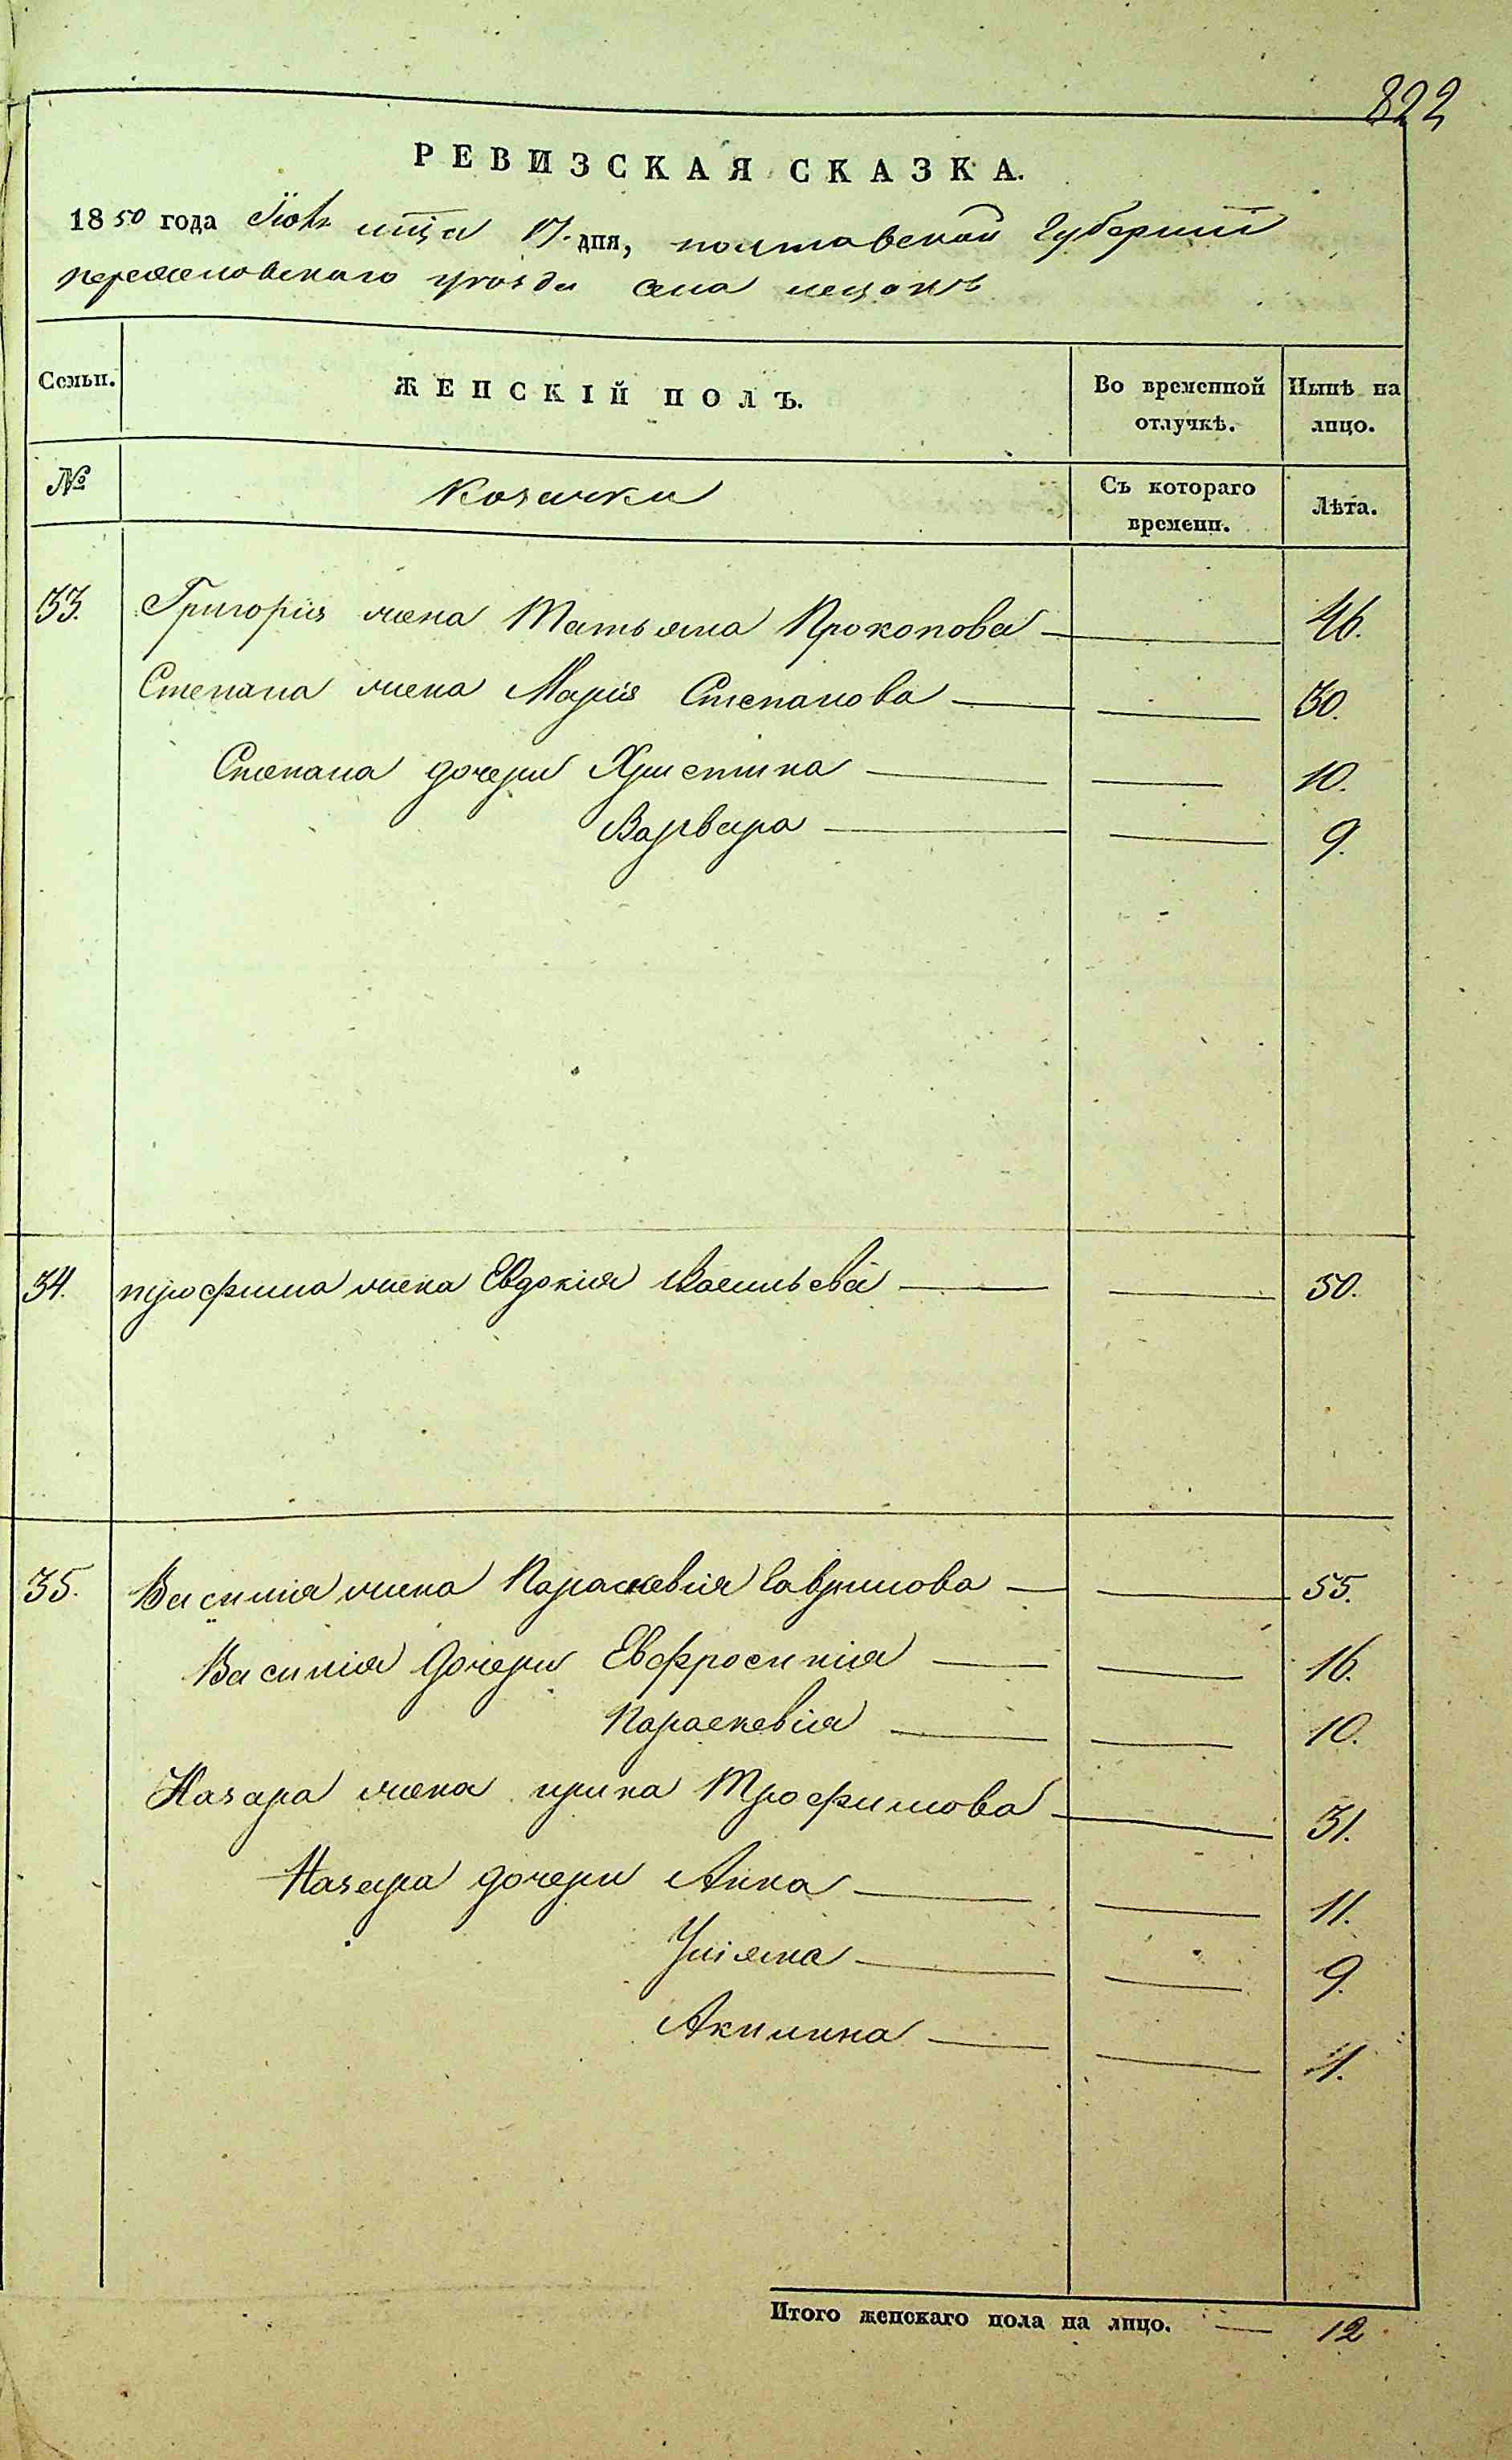 822
РЕВИЗСКАЯ СКАЗКА.
1850 года мѣца 17. дня, полтавской Губерніи
переяславскаго уѣзда села лецокъ
Семьи.
ЖЕНСКІЙ ПОЛЪ.
Во временной отлучкѣ.
Нынѣ на лицо.
№
Козачки
Съ котораго времени.
Лѣта.
33. Григорія жена Татьяна Прокопова — — 46.
Степана жена Марія Степанова — — 30.
Степана дочери Христина — — 10.
Варвара — — 9.
34. трофима жена Евдокія Васильева — — 50.
35. Василія жена Параскевія Гаврилова — — 55.
Василія дочери Евфросинія — — 16.
Параскевія — — 10.
Назара жена ирина Трофимова — — 31.
Назара дочери Анна — — 11.
Уліяна — — 9.
Акилина — —
Итого женскаго пола на лицо. — 12